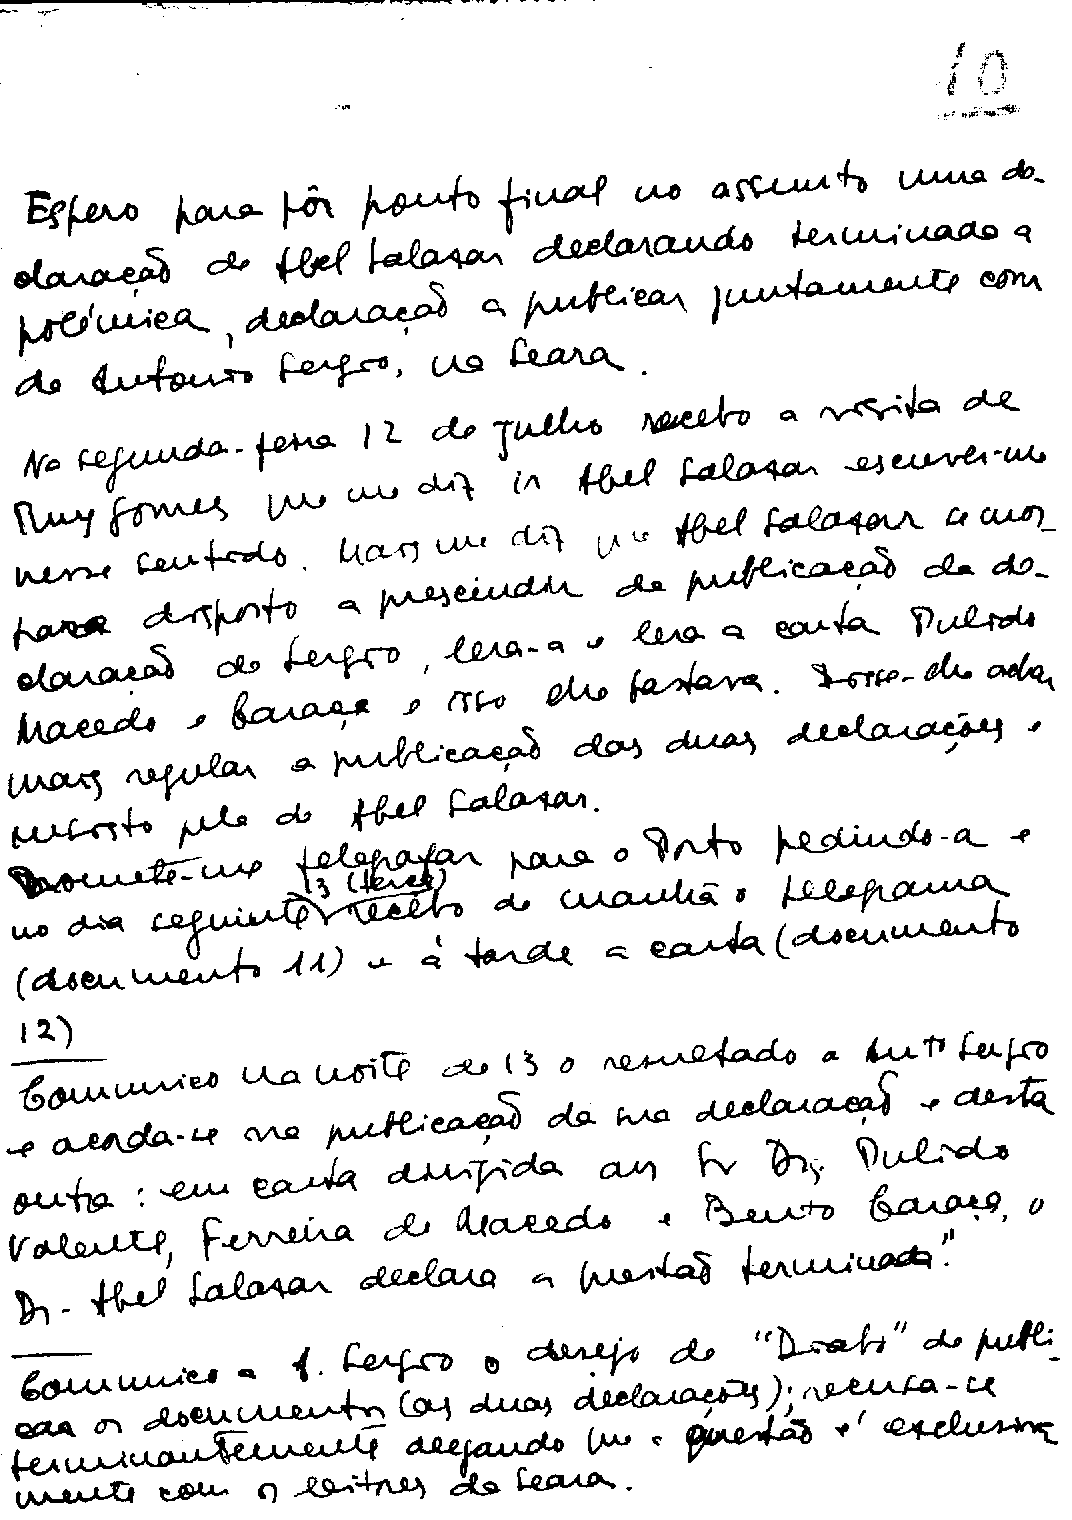 10
Espero para pôr ponto final no assunto uma de-
claração de Abel Salazar declarando terminada a
polémica, declaração a publicar juntamente com
a de António Sergio, na Seara.
Na segunda-feira 12 de Julho recebo a visita de
Ruy Gomes que me diz ir Abel Salazar escrever-me
nesse sentido. Mais me diz que Abel Salazar se mos-
trara disposto a prescindir da publicação da de-
claração de Sergio, lera-a e lera a carta Pulido
Macedo e Caraça e isso lhe bastava. Disse-lhe achar
mais regular a publicação das duas declarações e
insisto pela de Abel Salazar.
Promete-me telegrafar para o Porto pedindo-a e
no dia seguinte 13 (terça) recebo de manhã o telegrama
(documento 11) e à tarde a carta (documento
12)
Comunico na noite de 13 o resultado a Antº Sergio
e acorda-se na publicação da sua declaração e desta
outra: "em carta dirigida aos Sr Drs. Pulido
Valente, Ferreira de Macedo e Bento Caraça, o
Dr. Abel Salazar declara a questão terminada".
Comunico a A. Sergio o desejo do "Diabo" de publi-
car os documentos (as duas declarações); recusa-se
terminantemente alegando que a questão é exclusiva
mente com os leitores da Seara.